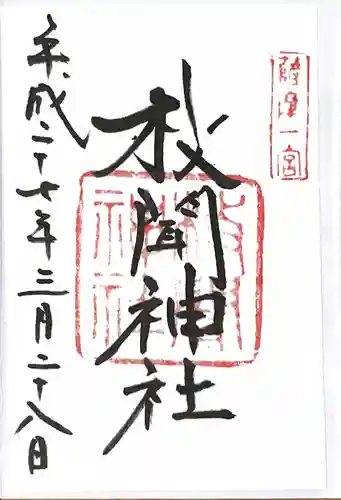 薩摩一宮
枚聞神社
平成二十七年三月二十八日